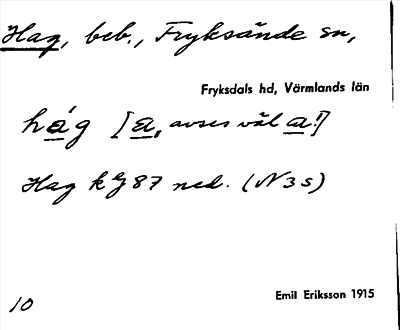 Hag, beb., Fryksände sn,
Fryksdals hd, Värmlands län
hág [a, avses väl a!]
Hag kEg 87 ned. (N 3 s)
Emil Eriksson 1915
10